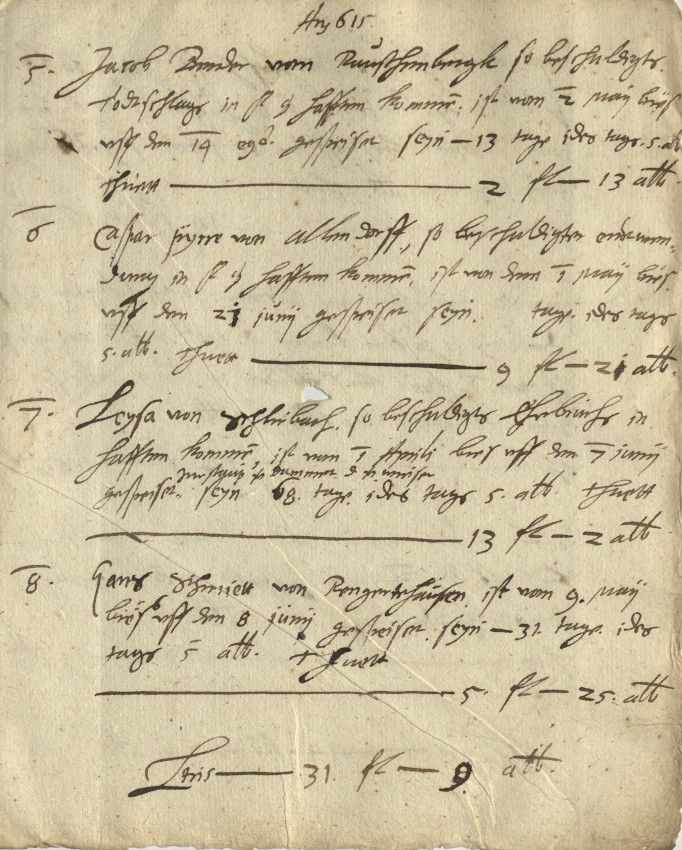 Any 615
5. Jacob Bender vom Rauschenbergk so beschuldigts
todtschlags in hafften kommen, ist vom 2 Maij bies
uff den 14 gespeiset seyn – 13 tage ides tags 5 alb
thuett — 2 fl – 13 alb
6 Caspar von Allendorff, so beschuldigter entwen-
dung in hafften kommen, ist von dem 1 Maij bies
uff den 21 junij gespeiset seyn. tage. ides tags
5. alb. thuett — 9 fl – 21 alb.
7. Leysa von Schlirbach, so beschuldigts Ehebruchs in
hafften kommen, ist vom 1 Aprili bies uff den 7 junij
gespeiset. seyn 68. tage. ides tags 5. alb thuett
— 13 fl – 2 alb
8. Hans Schmiett von Rengertshausen ist vom 9. Maij
bies uff den 8 junij gespeiset. seyn – 31. tage. ides
tags 5 alb. thuett
— 5. fl – 25. alb
Latus — 31. fl – 9 alb.